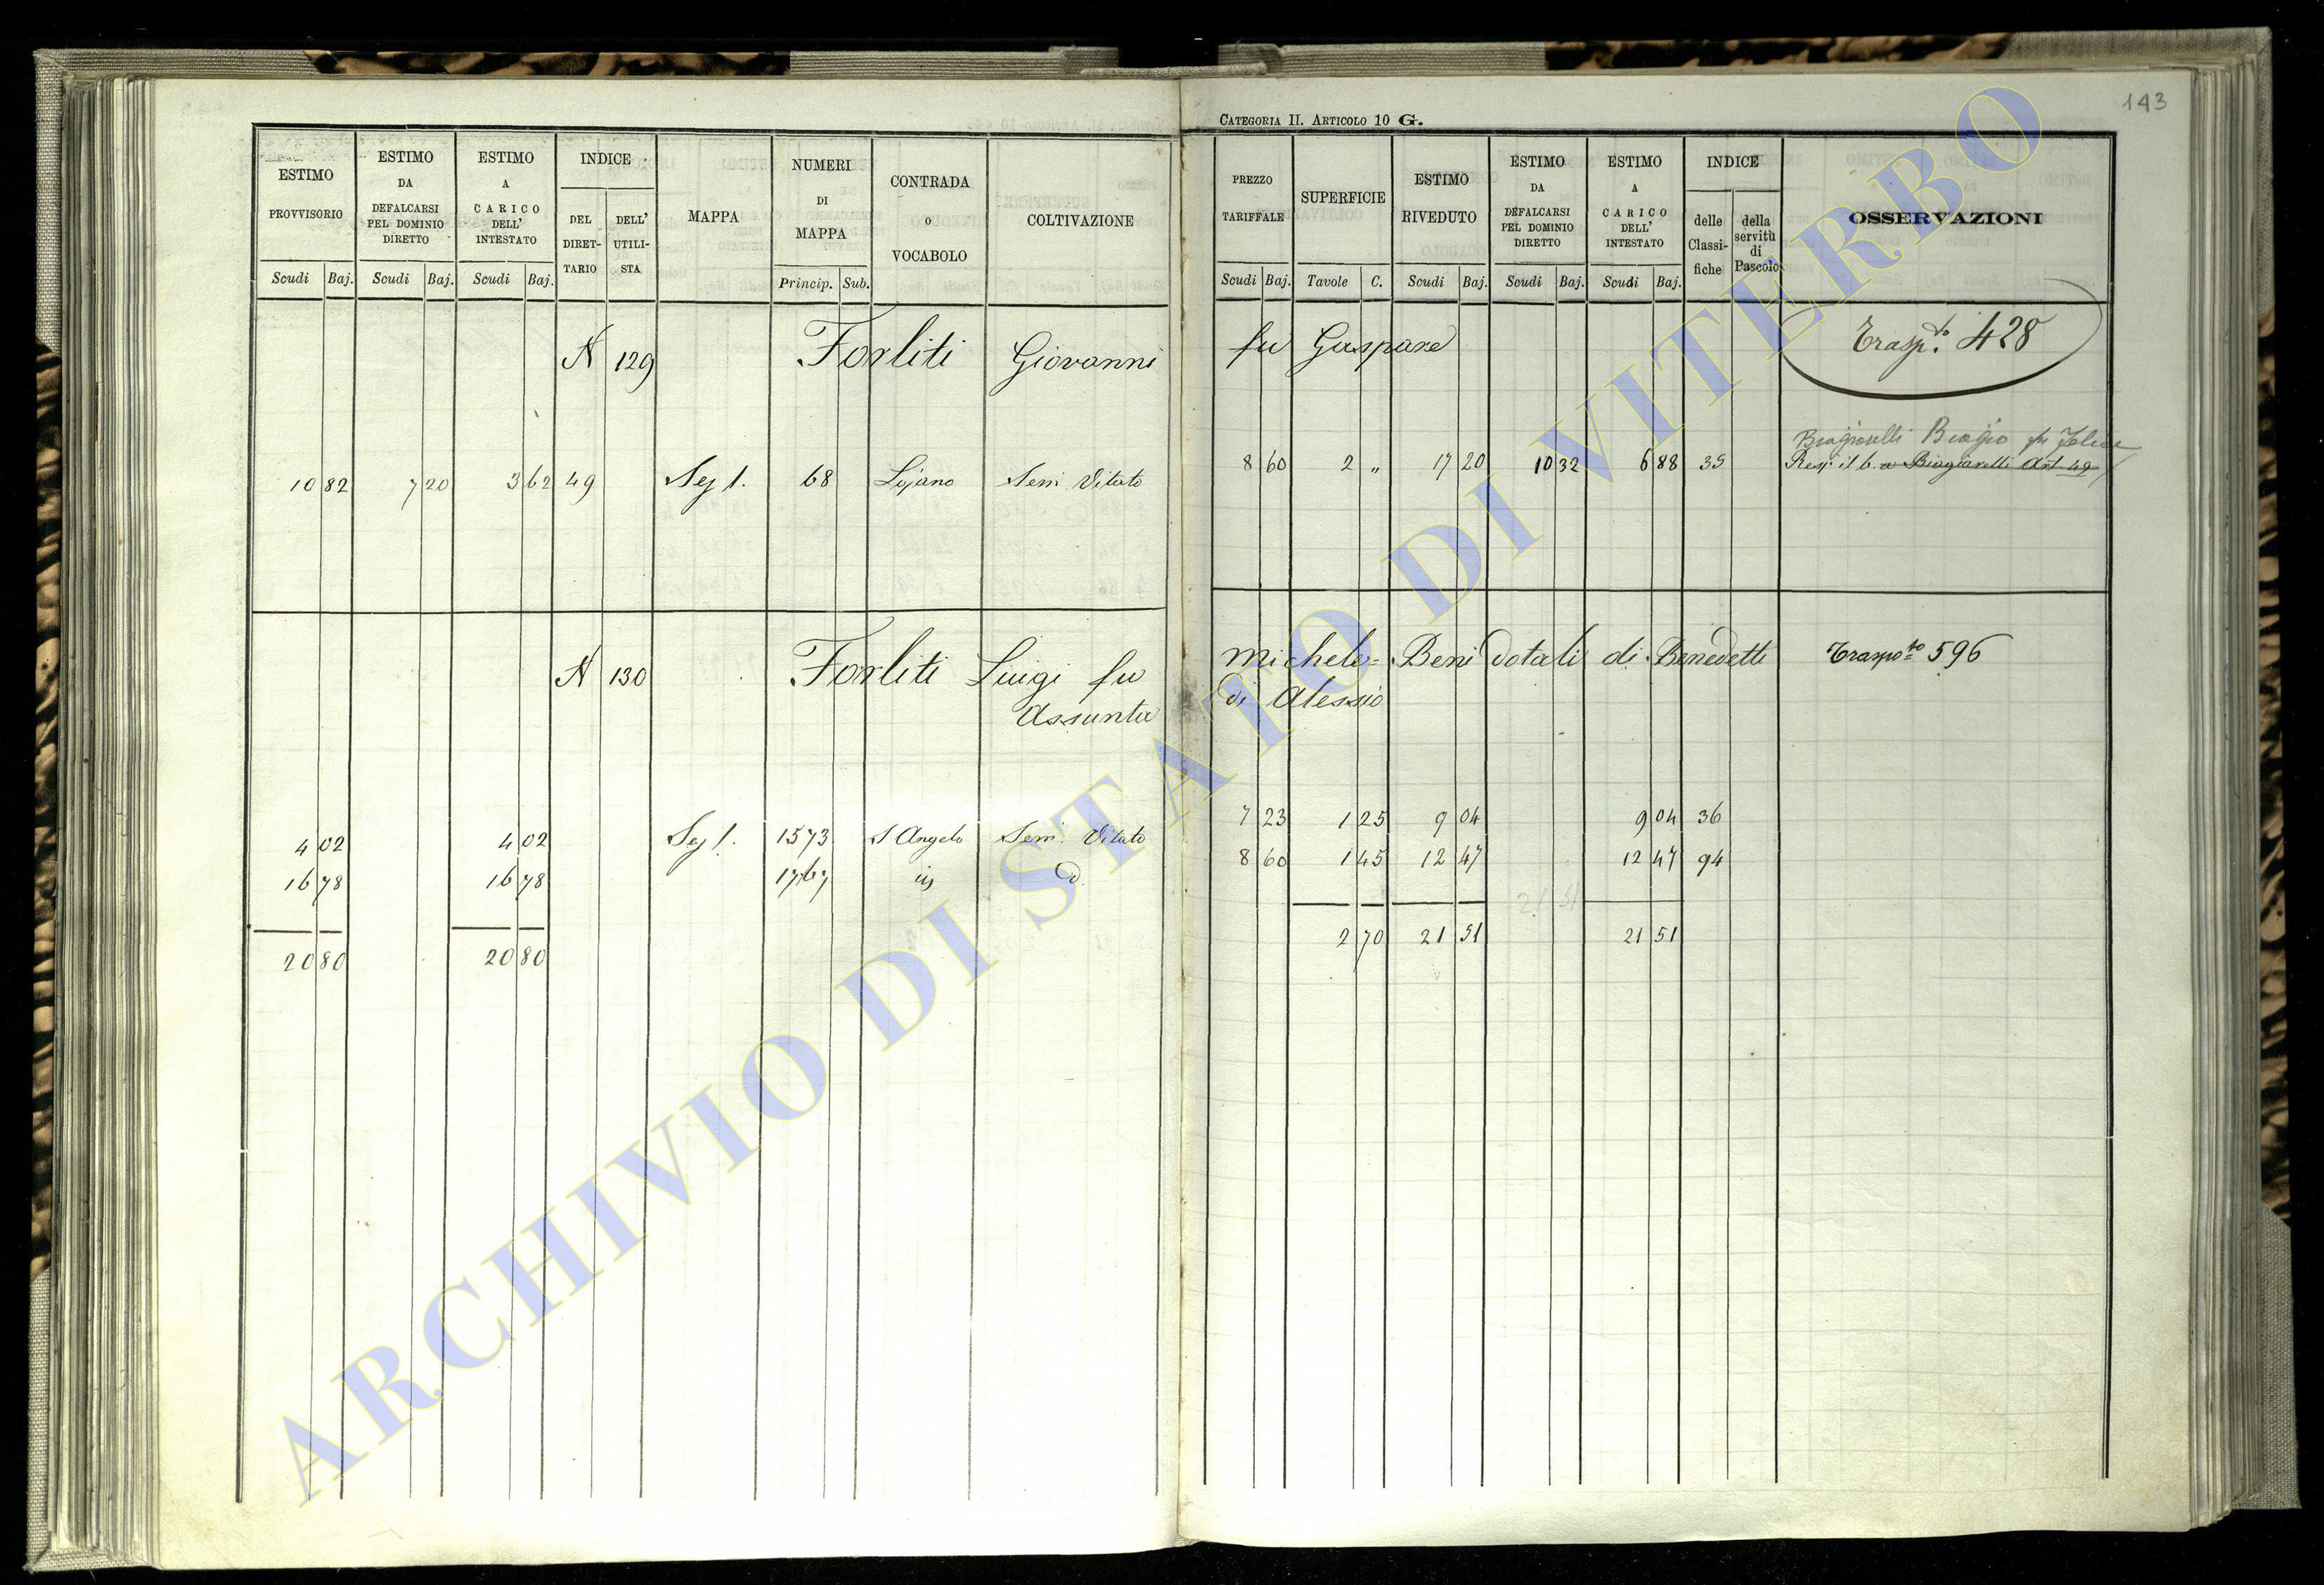 143
CATEGORIA II. ARTICOLO 10 G.
ESTIMO PROVVISORIO Scudi Baj.
ESTIMO DA DEFALCARSI PEL DOMINIO DIRETTO Scudi Baj.
ESTIMO A CARICO DELL' INTESTATO Scudi Baj.
INDICE DEL DIRETTARIO DELL' UTILISTA
MAPPA
NUMERI DI MAPPA Princip. Sub.
CONTRADA o VOCABOLO
COLTIVAZIONE
PREZZO TARIFFALE Scudi Baj.
SUPERFICIE Tavole C.
ESTIMO RIVEDUTO Scudi Baj.
ESTIMO DA DEFALCARSI PEL DOMINIO DIRETTO Scudi Baj.
ESTIMO A CARICO DELL' INTESTATO Scudi Baj.
INDICE delle Classifiche della servitù di Pascolo
OSSERVAZIONI
N 129 Forliti Giovanni fu Gaspare Trasp.to 428
Biagiarelli Biagio fu Felice
10 82 7 20 3 62 49 Sez I. 68 Lojano Sem Vitato 8 60 2 „ 17 20 10 32 6 88 35 Resp: il b. a Biagiarelli Art 49
N 130 Forliti Luigi fu Michele= Beni dotali di Benedetti Traspo to 596
Assunta di Alessio
4 02 4 02 Sez I. 1573 S Angelo Sem. Vitato 7 23 1 25 9 04 9 04 36
16 78 16 78 1767 in D. 8 60 1 45 12 47 12 47 94
21 51
20 80 20 80 2 70 21 51 21 51
ARCHIVIO DI STATO DI VITERBO